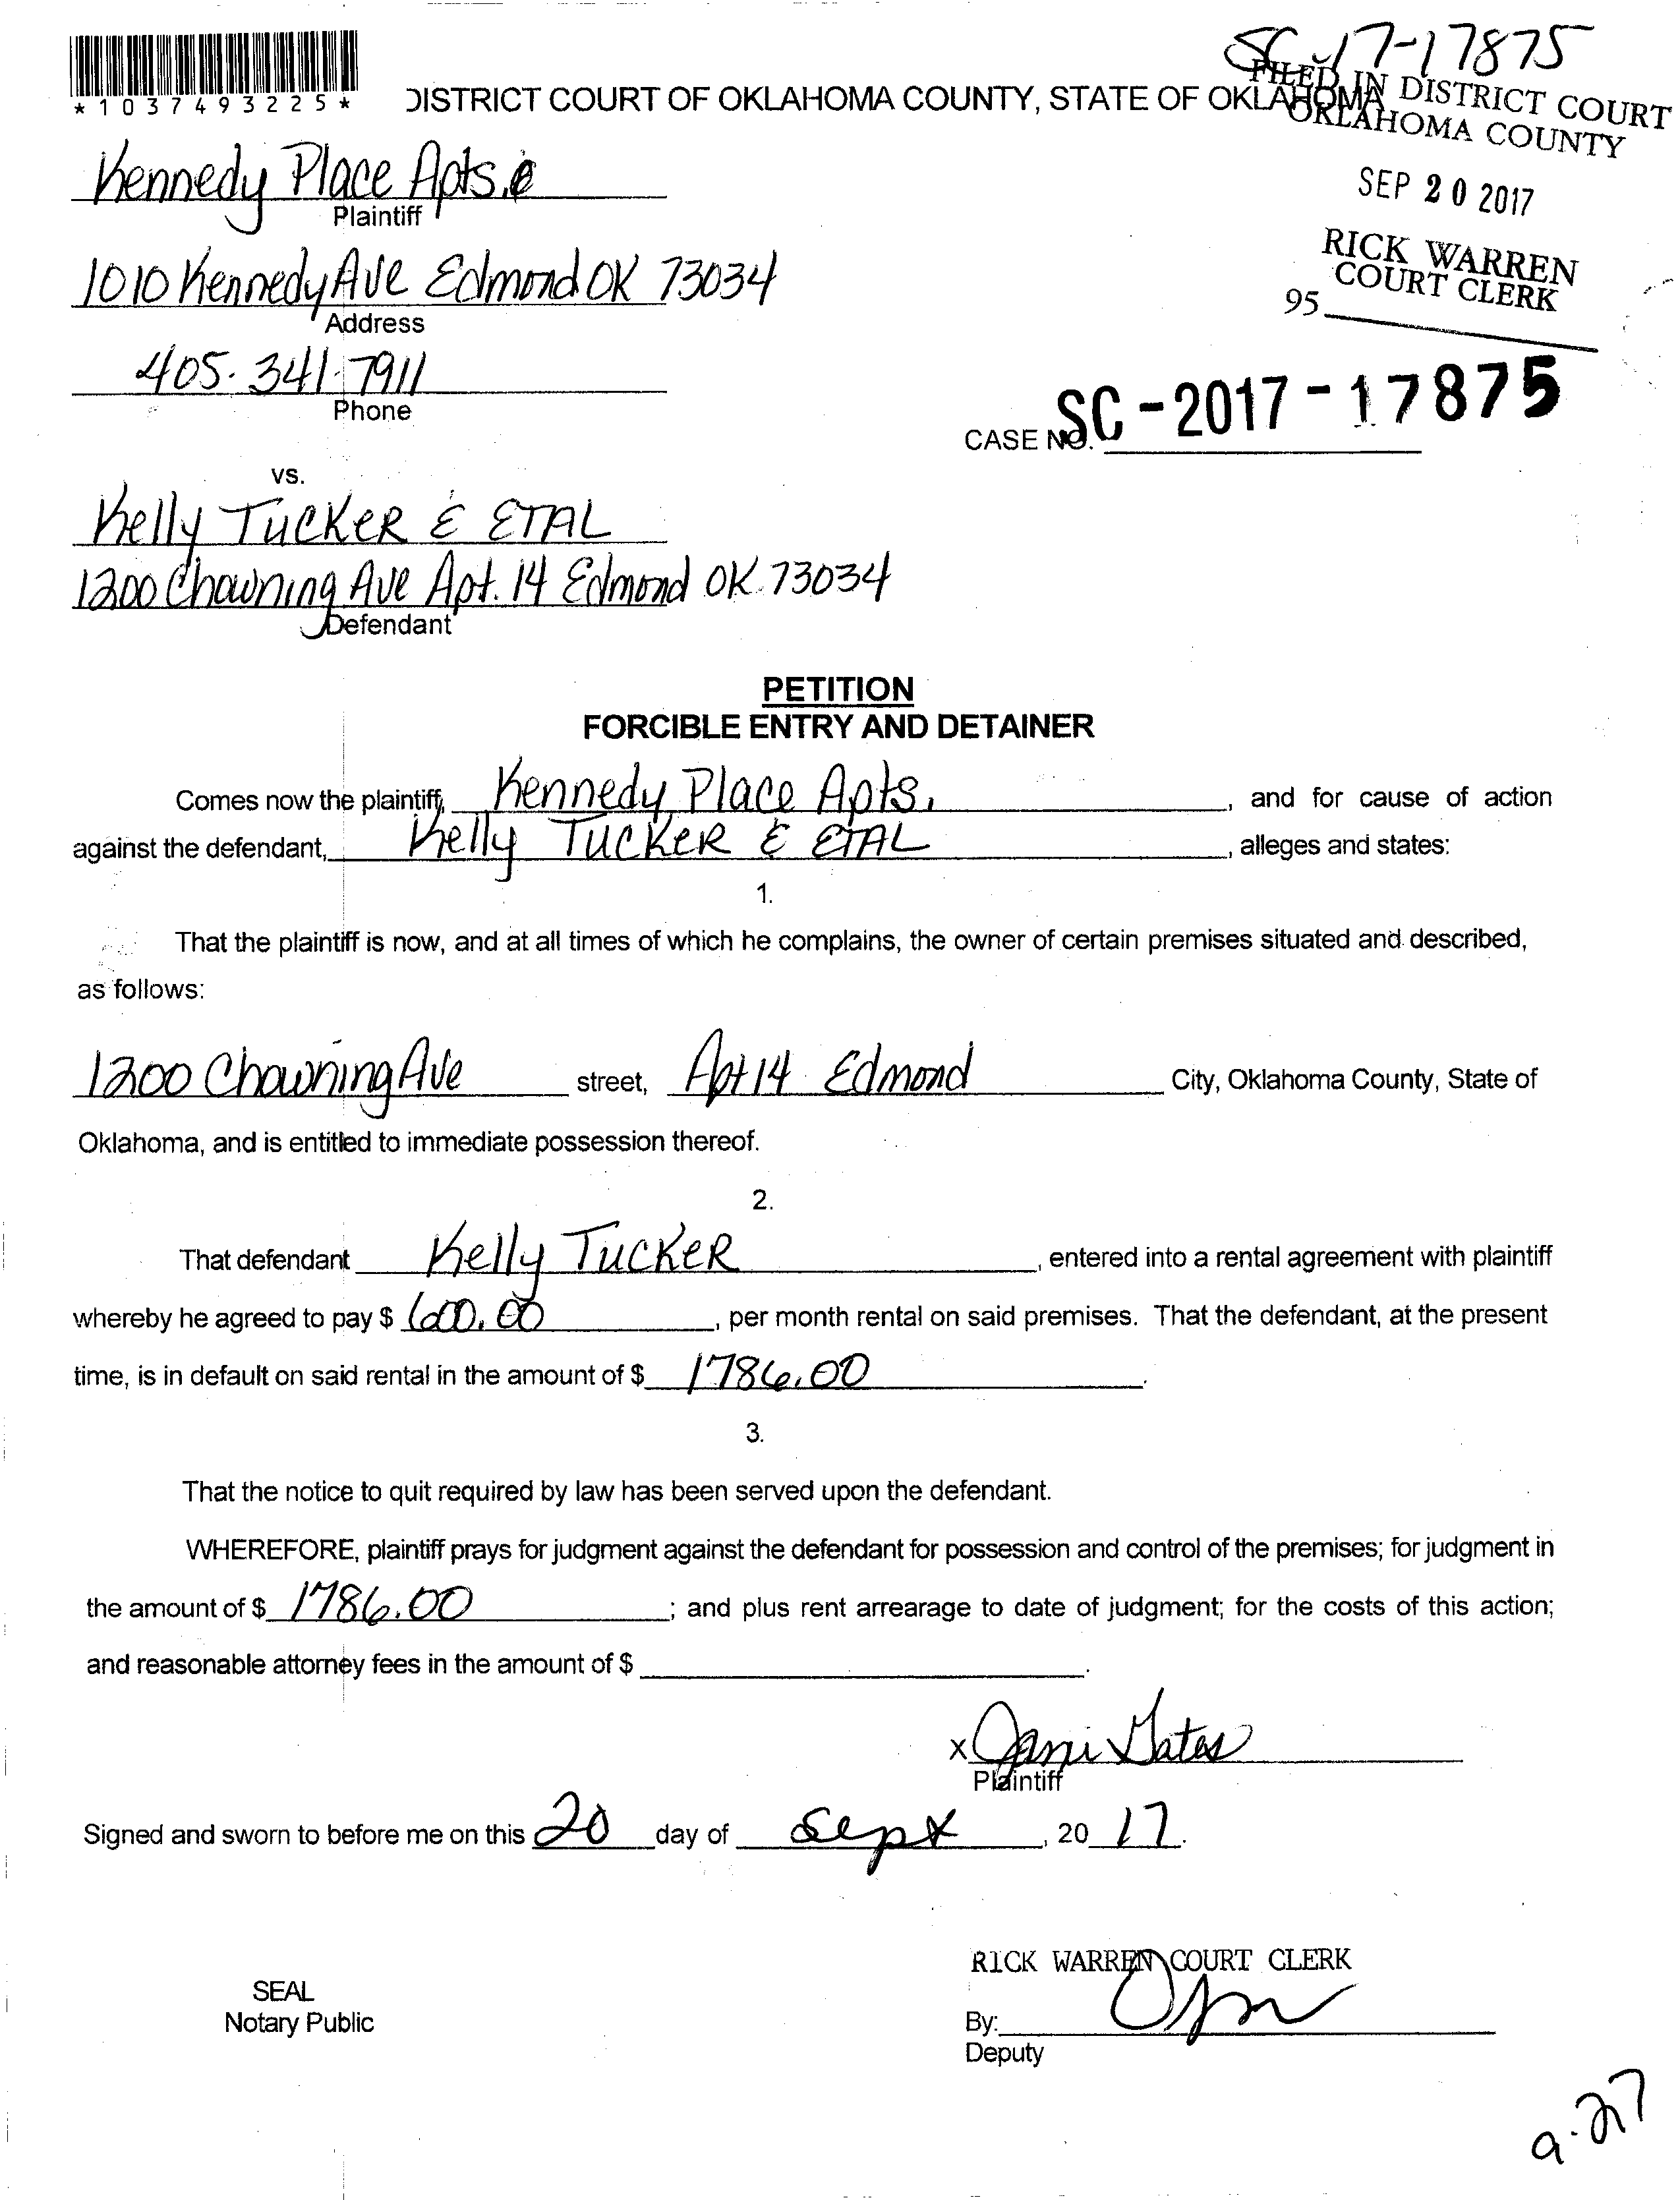 SC 17-17875
*1037493225*
DISTRICT COURT OF OKLAHOMA COUNTY, STATE OF OKLAHOMA
FILED IN DISTRICT COURT
OKLAHOMA COUNTY
SEP 20 2017
RICK WARREN
COURT CLERK
95
Kennedy Place Apts.
Plaintiff
1010 Kennedy Ave Edmond OK 73034
Address
405-341-7911
Phone
CASE NO. SC-2017-17875
vs.
Kelly TUCKER & ETAL
1200 Chowning Ave Apt. 14 Edmond OK 73034
Defendant
PETITION
FORCIBLE ENTRY AND DETAINER
Comes now the plaintiff, Kennedy Place Apts. , and for cause of action
against the defendant, Kelly TUCKER & ETAL , alleges and states:
1.
That the plaintiff is now, and at all times of which he complains, the owner of certain premises situated and described,
as follows:
1200 Chowning Ave street, Apt 14 Edmond City, Oklahoma County, State of
Oklahoma, and is entitled to immediate possession thereof.
2.
That defendant Kelly TUCKER , entered into a rental agreement with plaintiff
whereby he agreed to pay $ 600.00 , per month rental on said premises. That the defendant, at the present
time, is in default on said rental in the amount of $ 1786.00 .
3.
That the notice to quit required by law has been served upon the defendant.
WHEREFORE, plaintiff prays for judgment against the defendant for possession and control of the premises; for judgment in
the amount of $ 1786.00 ; and plus rent arrearage to date of judgment; for the costs of this action;
and reasonable attorney fees in the amount of $ .
x Jami Gates
Plaintiff
Signed and sworn to before me on this 20 day of Sept , 20 17.
RICK WARREN COURT CLERK
SEAL
Notary Public
By:
Deputy
9-27